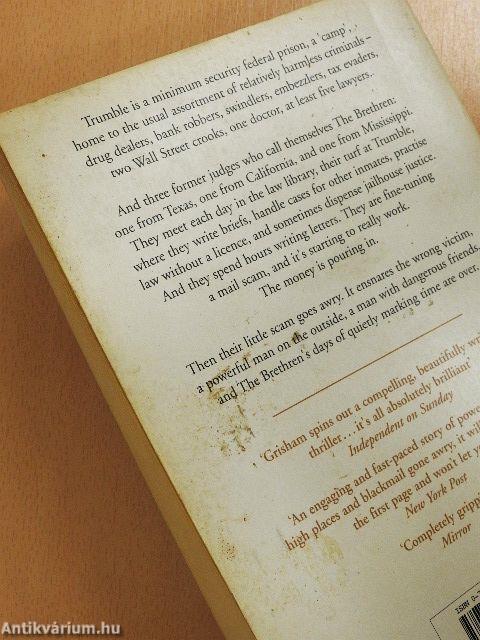 Trumble is a minimum security federal prison, a 'camp',
home to the usual assortment of relatively harmless criminals –
drug dealers, bank robbers, swindlers, embezzlers, tax evaders,
two Wall Street crooks, one doctor, at least five lawyers.
And three former judges who call themselves The Brethren:
one from Texas, one from California, and one from Mississippi.
They meet each day in the law library, their turf at Trumble,
where they write briefs, handle cases for other inmates, practise
law without a licence, and sometimes dispense jailhouse justice.
And they spend hours writing letters. They are fine-tuning
a mail scam, and it's starting to really work.
The money is pouring in.
Then their little scam goes awry. It ensnares the wrong victim,
a powerful man on the outside, a man with dangerous friends,
and The Brethren's days of quietly marking time are over.
'Grisham spins out a compelling, beautifully
thriller...it's all absolutely brilliant'
Independent on Sunday
'An engaging and fast-paced story of
high places and blackmail gone awry. it
the first page and won't let
New York Post
'Completely
Mirror
ISBN 0-
Antikvárium.hu